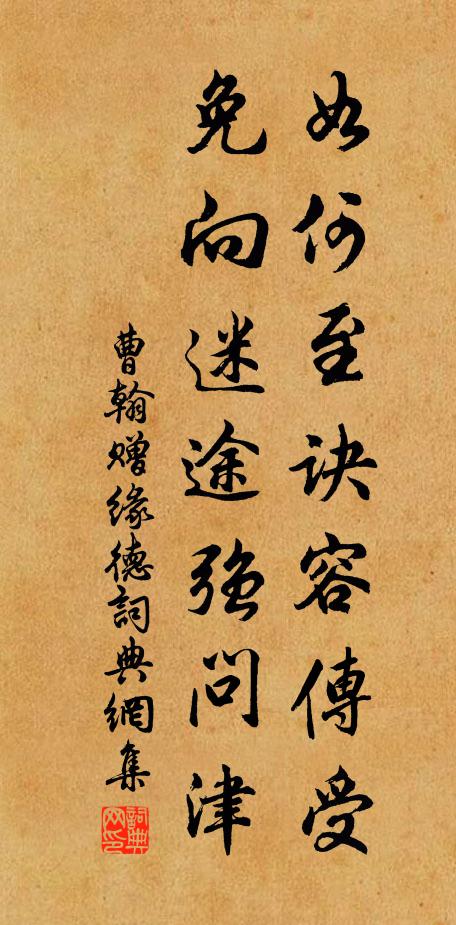 如何至訣容傳受
免向迷途强問津
曹翰赠缘德詞典網集
詞典网印